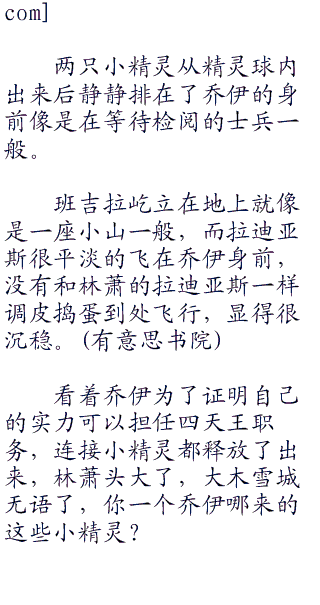 com]
两只小精灵从精灵球内
出来后静静排在了乔伊的身
前像是在等待检阅的士兵一
般。
班吉拉屹立在地上就像
是一座小山一般，而拉迪亚
斯很平淡的飞在乔伊身前，
没有和林萧的拉迪亚斯一样
调皮捣蛋到处飞行，显得很
沉稳。(有意思书院)
看着乔伊为了证明自己
的实力可以担任四天王职
务，连接小精灵都释放了出
来，林萧头大了，大木雪城
无语了，你一个乔伊哪来的
这些小精灵？